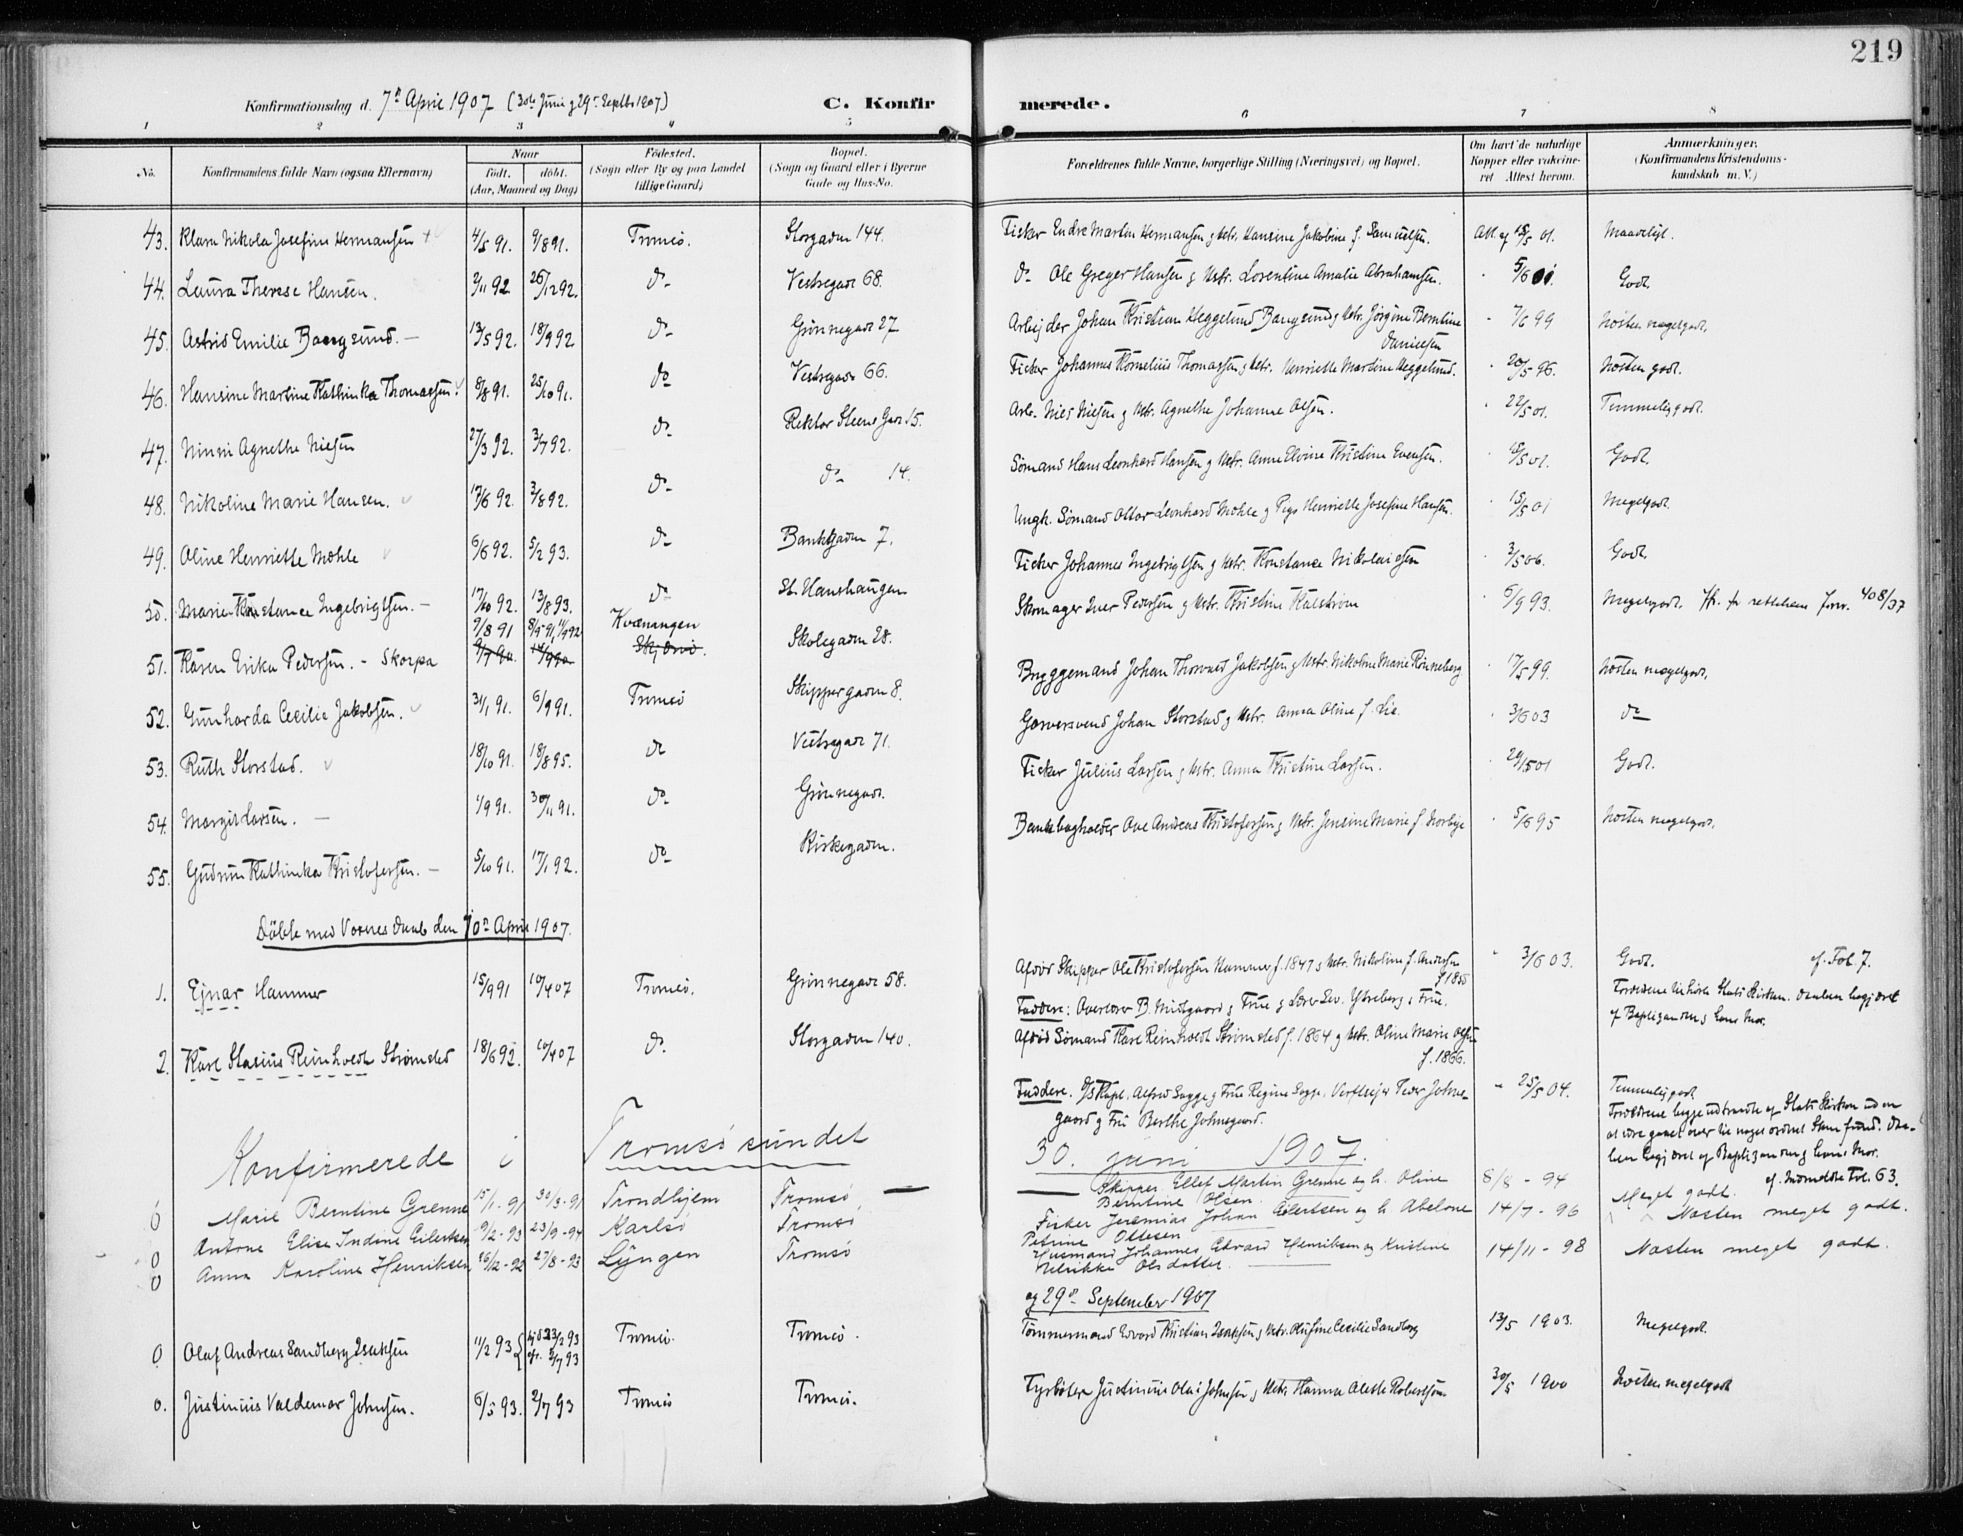 219
Konfirmationsdag d. 7de April 1907 (30te Juni og 29de Septbr 1907) C. Konfirmerede.
1 2 3 4 5 6 7 8
No. Konfirmandens fulde Navn (ogsaa Efternavn) Naar født. døbt. (Aar, Maaned og Dag) Fødested. (Sogn eller By og paa Landet tillige Gaard) Bopæl. (Sogn og Gaard eller i Byerne Gade og Hus-No. Forældrenes fulde Navne, borgerlige Stilling (Næringsvei) og Bopæl. Om havt de naturlige Kopper eller vakcineret Attest herom. Anmærkninger. (Konfirmandens Kristendomskundskab m. V.)
43. Klara Nikola Josefine Hermansen 4/5 91. 9/8 91. Tromsø. Storgaden 144. Fisker Endre Martin Hermansen og Hstr. Hansine Jakobine f. Samuelsen. Att. af 15/5 01. Maadeligt.
44. Laura Therese Hansen. 2/11 92 26/12 92. do Vestregade 68. do Ole Greger Hansen og Hstr. Lorentine Amalie Abrahamsen. 5/6 01. Godt.
45. Astrid Emilie Bangsund. 13/5 92. 18/9 92 do Grønnegade 27 Arbejder Johan Kristian Heggelund Bangsund og Hstr. Jörgine Berntine Danielsen 7/6 99 Næsten megetgodt.
46. Hansine Martine Kathinka Thomassen. 8/8 91. 25/10 91. do Vestregade 66. Fisker Johannes Kornelius Thomassen og Hstr. Henriette Martine Heggelund. 20/5 96. Næsten godt.
47. Ninni Agnethe Nilsen 27/3 92. 3/7 92. do Rektor Steens Gade 15. Arb. Nils Nilsen og Hstr. Agnethe Johanne Olsen. 22/5 01. Temmelig godt.
48. Nikoline Marie Hansen. 17/6 92. 3/8 92. do do 14. Sømand Hans Leonhard Hansen og Hstr. Anne Elvine Kristine Evensen. 15/5 01. Godt.
49. Oline Henriette Mohle 6/6 92. 5/2 93. do Bankgaden 7. Ungk. Sømand Ottar Leonhard Mohle og Pige Henriette Josefine Hansen. 15/5 01 Megetgodt.
50. Marie Konstance Ingebrigtsen. 17/10 92. 13/8 93. do St. Hanshaugen Fisker Johannes Ingebrigtsen og Hstr. Konstance Nikolaisen 3/5 06. Godt.
51. Karen Erika Pedersen. - Skorpa 9/8 91 Kvænangen Skjærvø. Skolegaden 28. Skomager Iver Pedersen og Hstr. Kristine Kalstrøm 6/9 93. Megetgodt. 408/37
52. Gunharda Cecilie Jakobsen. 31/1 91. 6/9 91. Tromsø Skippergaden 8. Bryggemand Johan Thorvald Jakobsen og Hstr. Nikoline Marie Rønneberg 17/5 99. Næsten megetgodt.
53. Ruth Storstad. 18/10 91. 18/8 95. do Vestregade 71. Garversvend Johan Storstad og Hstr. Anna Oline f. Lie. 3/6 03 do
54. Margit Larsen. 1/9 91. 30/11 91. do Grønnegade. Fisker Julius Larsen og Hstr. Anna Kristine Larsen. 29/5 01 Godt.
55. Gudrun Kathinka Kristofersen. 5/10 91. 17/1 92. do Kirkegaden. Bankbogholder Ove Andreas Kristofersen og Hstr. Jensine Marie f. Norbye 5/6 95 Næsten megetgodt.
Døbte med Voxnes Daab den 10de April 1907.
1. Ejnar Hammer 15/9 91 10/4 07 Tromsø. Grønnegade 58. Afdød Skipper Ole Kristofersen Hammer f. 1847 og Hstr. Nikoline f. Andersen f 1855 3/6 03. Godt. cf. Fol 7.
Faddere: Overlærer B. Midtgaard og Frue og Lærer Sev. Ytreberg og Frue. Forældrene tilhørte Statskirken. Daaben begjæret
af Baptisanden og hans Mor.
2. Karl Stasius Reinholdt Strømsted 18/6 92. 10/4 07 do. Storgaden 140. Afdød Sømand Karl Reinholdt Strømsted f. 1864 og Hstr. Oline Marie Olsen f. 1866.
Faddere. Kapt. Alfred Sagge og Frue Regine Sagge. Værfteier Peder Johnsgaard og Fru Berthe Johnsgaard. 25/5 04. Temmelig godt.
Forældrene begge udtraadte af Statskirken uden
at være gaaet over til noget ordnet Samfund. Daaben begjæret af Baptisanden og hans Mor.
cf. Indmeldte Fol. 63.
Konfirmerede i Tromsøsundet 30. juni 1907.
0 Marie Berntine Grenne 15/1 - 91 30/3 - 91 Trondhjem Tromsø Skipper Ellef Martin Grenne og h. Oline Berntine Olsen. 8/8 - 94 Meget godt.
0 Antone Elise Indine Eilertsen 9/2 - 93 23/9 - 94 Karlsø Tromsø Fisker Jeremias Johan Eilertsen og h. Abelone Petrine Ottesen 14/7 - 96 Næsten meget godt.
0 Anna Karoline Henriksen 16/12 - 92 27/8 - 93 Lyngen Tromsø Husmand Johannes Edvard Henriksen og Kristine Ulrikke Olsdatter 14/11 - 98 Næsten meget godt.
og 29de September 1907
0 Olaf Andreas Sandberg Isaksen 11/2 93 Tromsø. Tromsø. Tømmermand Edvard Kristian Isaksen og Hstr. Olufine Cecilie Sandberg 13/5 1903. Megetgodt.
0. Justinius Valdemar Johnsen. 6/5 93. 2/7 93 Tromsø Tromsø. Fyrbøter Justinius Olai Johnsen og Hstr. Hanna Aleste Robertsen 30/5 1900 Næsten megetgodt